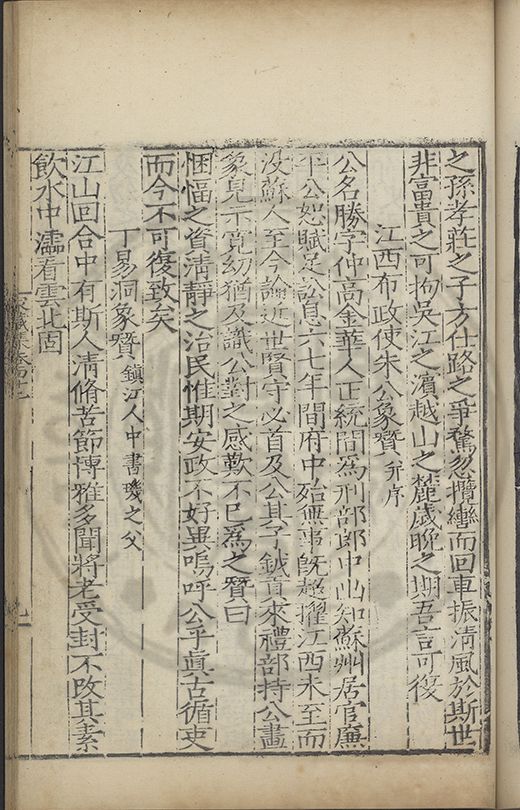 之孫孝莊之子方仕路之爭騖忽攬轡而回車振清風於斯世
非富貴之可拘吳江之濵越山之麓歲晚之期吾言可復
江西布政使朱公象贊 并序
公名勝字仲高金華人正統間為刑部郎中出知蘇州居官廉
平公恕賦足訟息六七年間府中殆無事旣超擢江西未至而
没蘇人至今論近世賢守必首及公其子鉞貢來禮部持公畫
象見示寬幼猶及識公對之感歎不已為之贊曰
悃愊之資清靜之治民惟期安政不好異嗚呼公乎眞古循吏
而今不可復致矣
丁易洞象贊 鎮江人中書璣之父
江山回合中有斯人清脩苦節博雅多聞將老受封不改其素
飲水中濡看雲北固
家藏集卷四十七
九